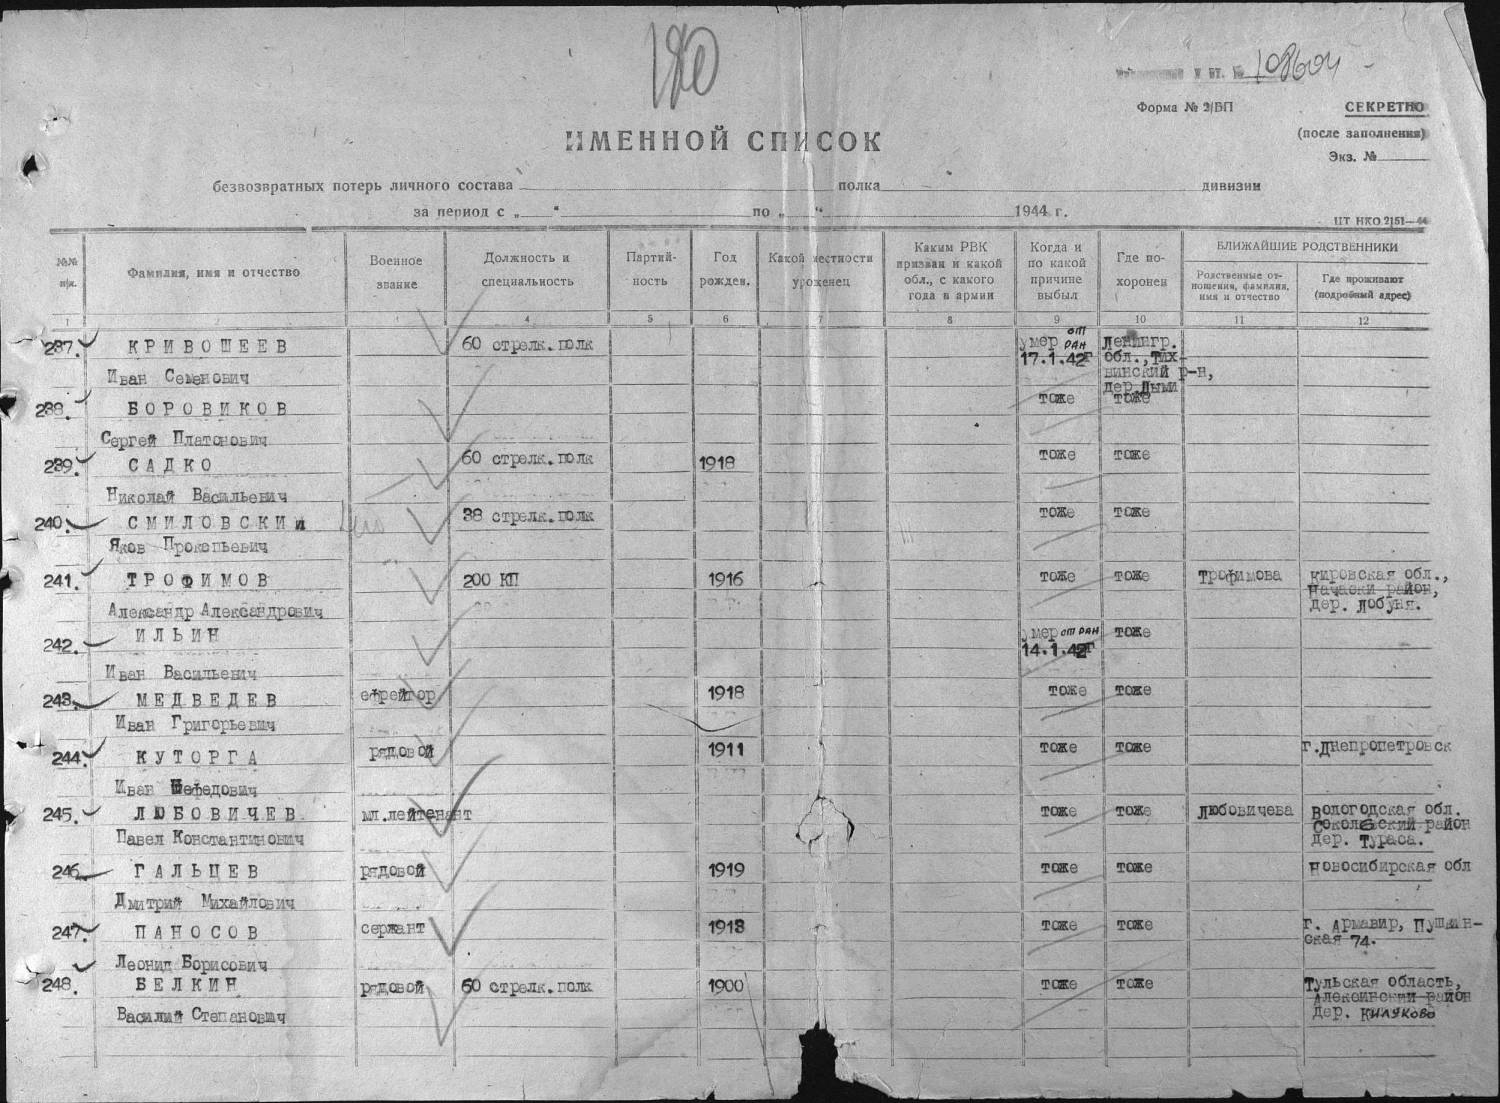 180
108604
Форма № 2/БП
СЕКРЕТНО
(после заполнения)
Экз. №
ИМЕННОЙ СПИСОК
безвозвратных потерь личного состава полка дивизии
за период с „ “ по „ “ 1944 г.
ЦТ НКО 2151—44
№№ п/п.
Фамилия, имя и отчество
Военное звание
Должность и специальность
Партийность
Год рожден.
Какой местности уроженец
Каким РВК призван и какой обл., с какого года в армии
Когда и по какой причине выбыл
Где похоронен
БЛИЖАЙШИЕ РОДСТВЕННИКИ
Родственные отношения, фамилия, имя и отчество
Где проживают (подробный адрес)
1 2 3 4 5 6 7 8 9 10 11 12
237. КРИВОШЕЕВ 60 стрелк.полк умер от ран Ленингр.
17.1.42г обл.,Тих-
винский р-н,
дер.Дыми
Иван Семенович
238. БОРОВИКОВ тоже тоже
Сергей Платонович
239. САДКО 60 стрелк.полк 1918 тоже тоже
Николай Васильевич
240. СМИЛОВСКИЙ 38 стрелк.полк тоже тоже
Яков Прокопьевич
241. ТРОФИМОВ 200 КП 1916 тоже тоже Трофимова Кировская обл.,
район,
дер. Лобуня.
Александр Александрович
242. ИЛЬИН умер от ран тоже
14.1.42г
Иван Васильевич
243. МЕДВЕДЕВ ефрейтор 1918 тоже тоже
Иван Григорьевич
244. КУТОРГА рядовой 1911 тоже тоже г.Днепропетровск
Иван
245. ЛЮБОВИЧЕВ мл.лейтенант тоже тоже Любовичева Вологодская обл.
Сокольский район
дер. Тураса.
Павел Константинович
246. ГАЛЬЦЕВ рядовой 1919 тоже тоже Новосибирская обл
Дмитрий Михайлович
247. ПАНОСОВ сержант 1918 тоже тоже г. Армавир, Пушкин-
ская 74.
Леонид Борисович
248. БЕЛКИН рядовой 60 стрелк.полк 1900 тоже тоже Тульская область,
Алексинский район
дер. Килуково
Василий Степанович